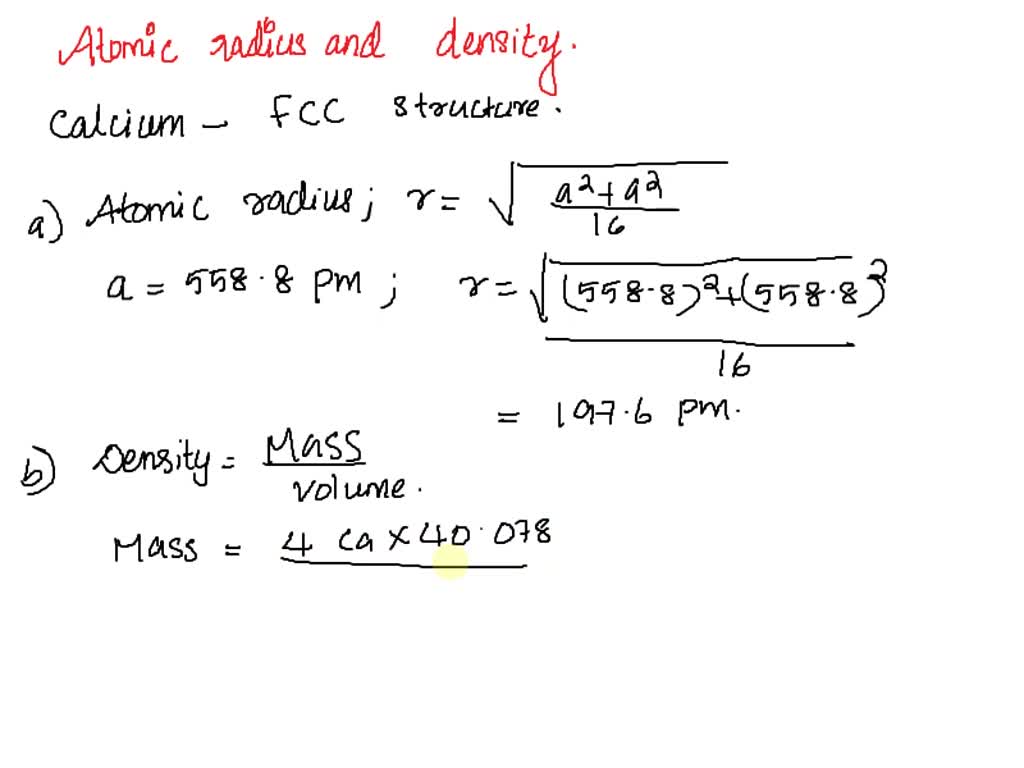 Atomic radius and density.
Calcium - FCC structure.
a) Atomic radius; r = √ a²+a² / 16
a = 558.8 pm ; r = √ (558.8)²+(558.8)² / 16
= 197.6 pm.
b) Density = Mass / volume.
Mass = 4 ca × 40.078